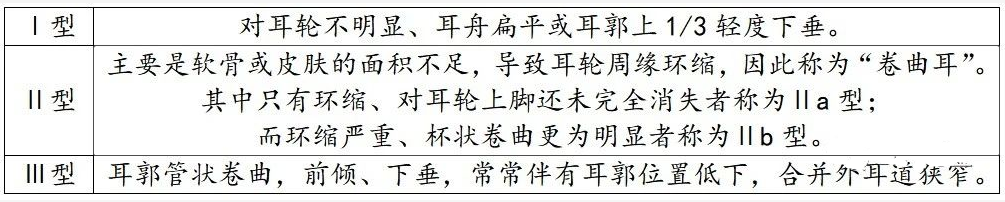 Ⅰ型 对耳轮不明显、耳舟扁平或耳郭上1/3轻度下垂。
主要是软骨或皮肤的面积不足，导致耳轮周缘环缩，因此称为“卷曲耳”。
Ⅱ型 其中只有环缩、对耳轮上脚还未完全消失者称为Ⅱa型；
而环缩严重、杯状卷曲更为明显者称为Ⅱb型。
Ⅲ型 耳郭管状卷曲，前倾、下垂，常常伴有耳郭位置低下，合并外耳道狭窄。